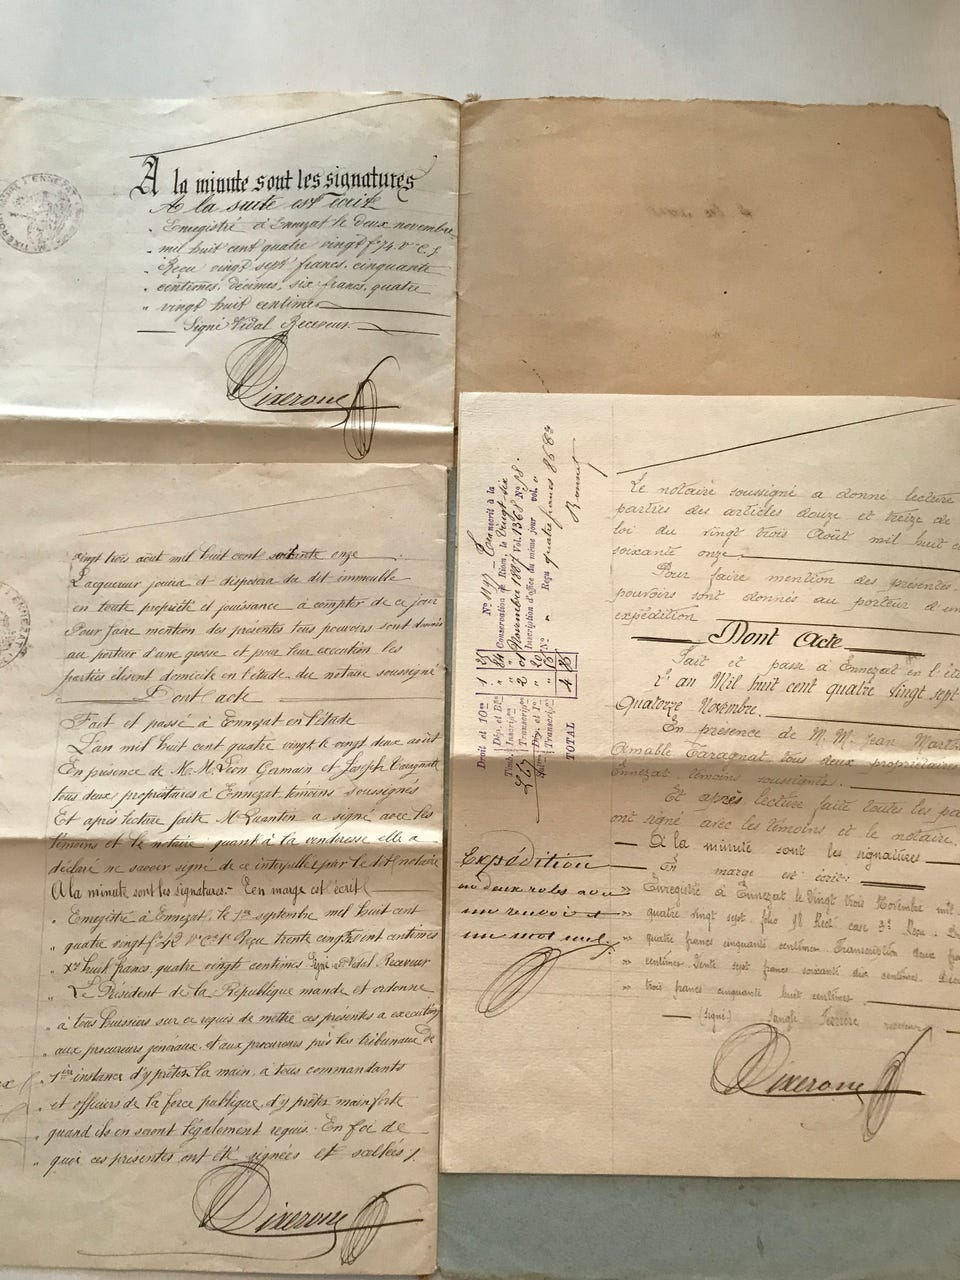 A la minute sont les signatures
A la suite est écrit
„ Enregistré à Ennezat le deux novembre
„ mil huit cent quatre vingt f° 74 v° c. 
„ Reçu vingt sept francs, cinquante
„ centimes, décimes, six francs, quatre
„ vingt huit centimes
Signé Vidal Receveur
Dixeronne
vingt trois août mil huit cent soixante onze
L'acquereur jouira et disposera du dit immeuble
en toute propriété et jouissance à compter de ce jour
Pour faire mention des présentes tous pouvoirs sont donnés
au porteur d'une grosse et pour leur execution les
parties élisent domicile en l'étude du notaire soussigné
Dont acte
Fait et passé à Ennezat en l'étude
L'an mil huit cent quatre vingt le vingt deux août
En presence de M.M. Léon Germain et Joseph
tous deux propriétaires à Ennezat témoins soussignés
Et après lecture faite M. Quantin a signé avec les
témoins et le notaire quant à la venderesse elle a
déclaré ne savoir signé de ce interpellée par le dit notaire
A la minute sont les signatures - En marge est écrit
„ Enregistré à Ennezat, le 1er septembre mil huit cent
„ quatre vingt f° 42 Reçu trente cinq centimes
„ huit francs, quatre vingt centimes Signé Vidal Receveur
Le Président de la République mande et ordonne
„ à tous huissiers sur ce requis de mettre ces presentes a execution
„ aux procureurs généraux et aux procureurs près les tribunaux de
„ 1ère instance d'y prêter la main, a tous commandants
„ et officiers de la force publique, d'y prêter mainforte
„ quand ils en seront légalement requis. En foi de
„ quoi ces présentes ont été signées et scellées
Dixeronne
Droits et 10es
Dép. et
Timb.
Inscrip
Transcrip
Transcrip
TOTAL
N° 1197 Transcrit à la
Conservation de Riom, le Vingt-six
Novembre 1887 Vol. 1368 N° 98.
Inscription d'office du même jour vol. "
N° " Reçu quatre francs 8683
Bonnet
Expédition
en deux roles avec
un renvoi et
un mot nul
Le notaire soussigné a donné lecture
parties des articles douze et treize de
loi du vingt trois Août mil huit c
soixante onze
Pour faire mention des presentes
pouvoirs sont donnés au porteur d'un
expédition
Dont Acte
Fait et passé à Ennezat en l'ét
L'an Mil huit cent quatre vingt sept
Quatorze Novembre.
En présence de M. M. Jean Marti
Amable Taragnat, tous deux propriétaires
Ennezat témoins soussignés.
Et après lecture faite toutes les pa
ont signé avec les témoins et le notaire.
A la minute sont les signatures
En marge est écrit:
„ Enregistré à Ennezat le Vingt trois Novembre mil
„ quatre vingt sept folio 18 Rect. case 3e. Reçu:
„ quatre francs cinquante centimes. Transcription deux fra
„ centimes. Vente sept francs soixante dix centimes.
„ trois francs cinquante huit centimes
(Signé)
Dixeronne